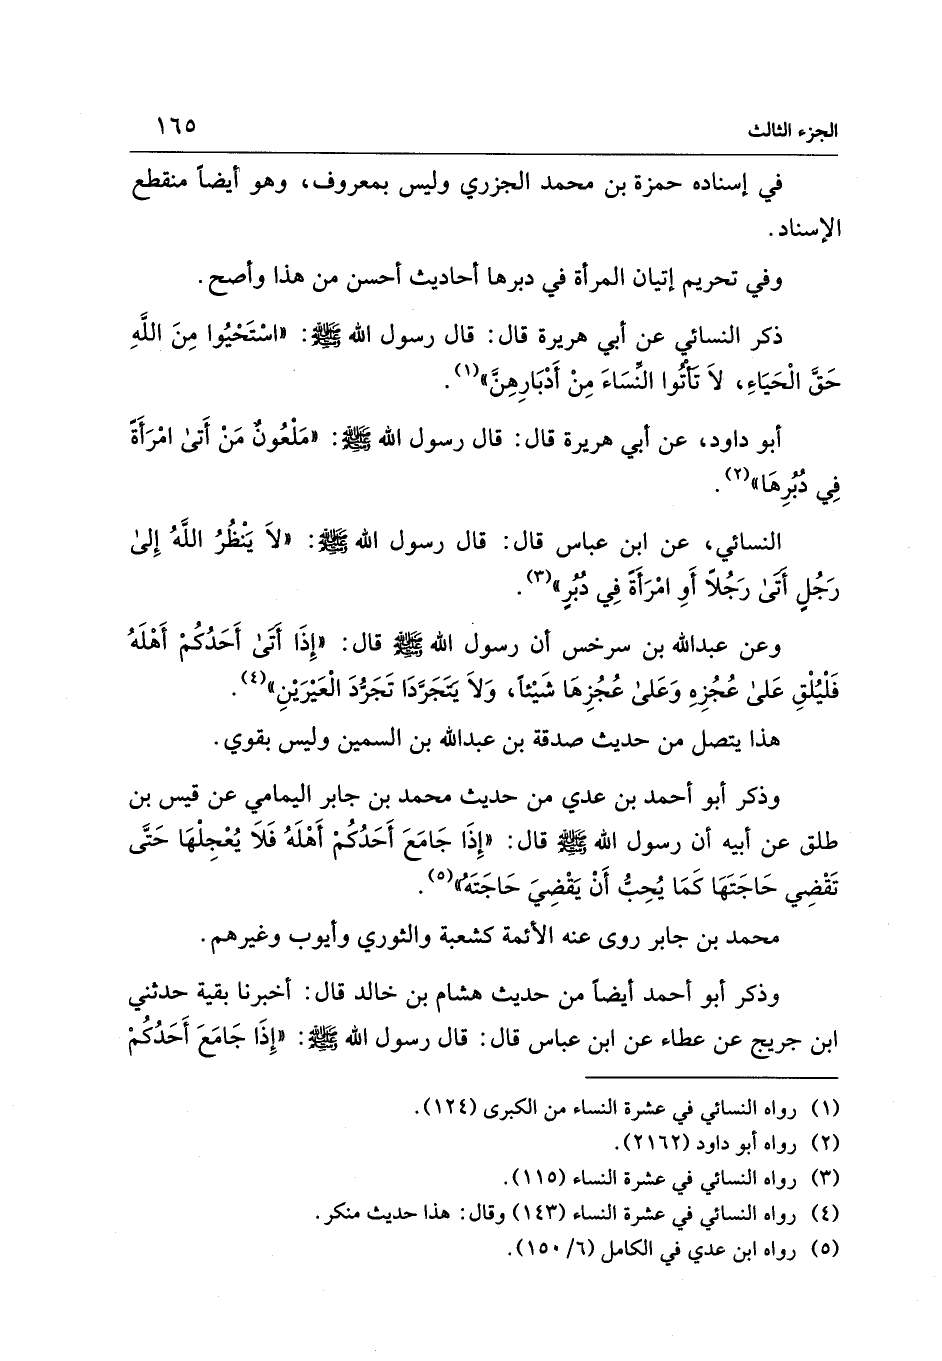 الجزء الثالث ١٦٥
في إسناده حمزة بن محمد الجزري وليس بمعروف، وهو أيضاً منقطع
الإسناد.
وفي تحريم إتيان المرأة في دبرها أحاديث أحسن من هذا وأصح.
ذكر النسائي عن أبي هريرة قال: قال رسول الله ﷺ: «اسْتَحْيُوا مِنَ اللَّهِ
حَقَّ الْحَيَاءِ، لاَ تَأْتُوا النِّسَاءَ مِنْ أَدْبَارِهِنَّ»(١).
أبو داود، عن أبي هريرة قال: قال رسول الله ﷺ: «مَلْعُونٌ مَنْ أَتىٰ امْرَأَةً
فِي دُبُرِهَا»(٢).
النسائي، عن ابن عباس قال: قال رسول الله ﷺ: «لاَ يَنْظُرُ اللَّهُ إِلىٰ
رَجُلٍ أَتَىٰ رَجُلاً أَوِ امْرَأَةً فِي دُبُرٍ»(٣).
وعن عبدالله بن سرخس أن رسول الله ﷺ قال: «إِذَا أَتَىٰ أَحَدُكُمْ أَهْلَهُ
فَلْيُلْقِ عَلىٰ عُجُزِهِ وَعَلىٰ عُجُزِهَا شَيْئاً، وَلاَ يَتَجَرَّدَا تَجَرُّدَ الْعَيْرَيْنِ»(٤).
هذا يتصل من حديث صدقة بن عبدالله بن السمين وليس بقوي.
وذكر أبو أحمد بن عدي من حديث محمد بن جابر اليمامي عن قيس بن
طلق عن أبيه أن رسول الله ﷺ قال: «إِذَا جَامَعَ أَحَدُكُمْ أَهْلَهُ فَلَا يُعْجِلْهَا حَتَّى
تَقْضِي حَاجَتَهَا كَمَا يُحِبُّ أَنْ يَقْضِيَ حَاجَتَهُ»(٥).
محمد بن جابر روى عنه الأئمة كشعبة والثوري وأيوب وغيرهم.
وذكر أبو أحمد أيضاً من حديث هشام بن خالد قال: أخبرنا بقية حدثني
ابن جريج عن عطاء عن ابن عباس قال: قال رسول الله ﷺ: «إِذَا جَامَعَ أَحَدُكُمْ
(١) رواه النسائي في عشرة النساء من الكبرى (١٢٤).
(٢) رواه أبو داود (٢١٦٢).
(٣) رواه النسائي في عشرة النساء (١١٥).
(٤) رواه النسائي في عشرة النساء (١٤٣) وقال: هذا حديث منكر.
(٥) رواه ابن عدي في الكامل (٦/ ١٥٠).